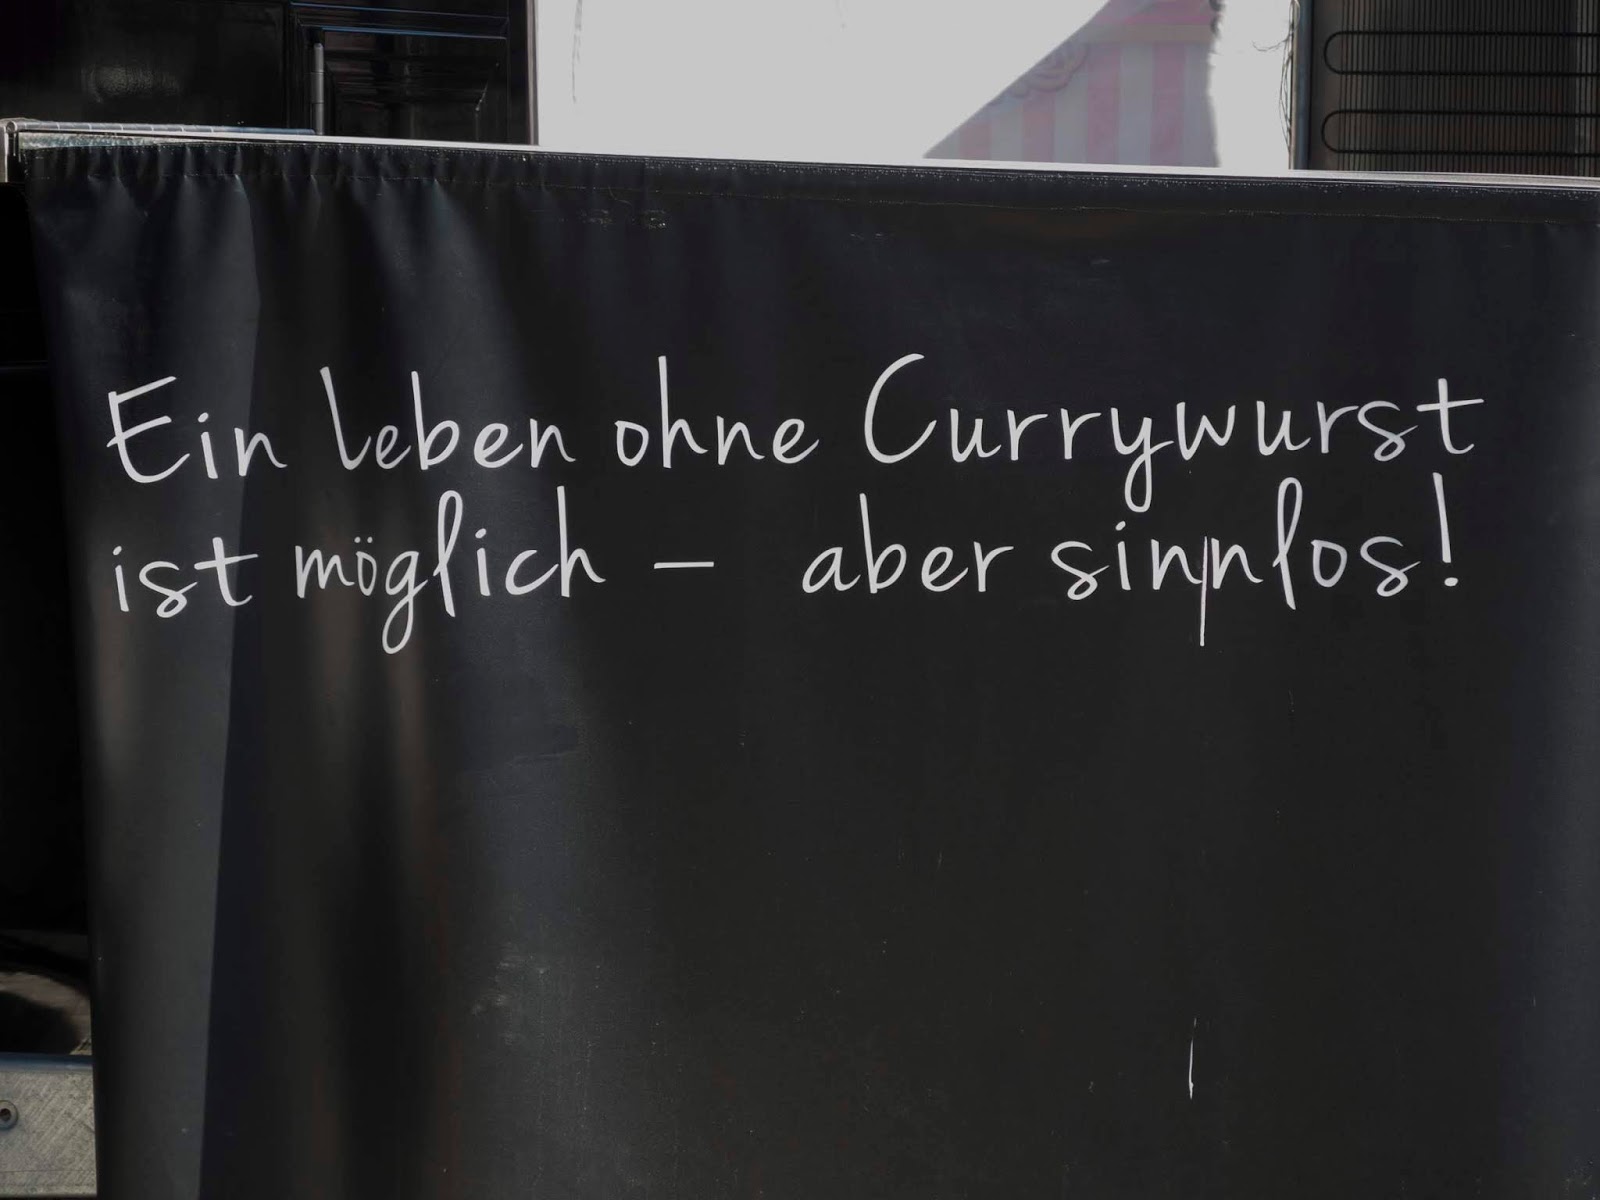 Ein Leben ohne Currywurst
ist möglich – aber sinnlos!